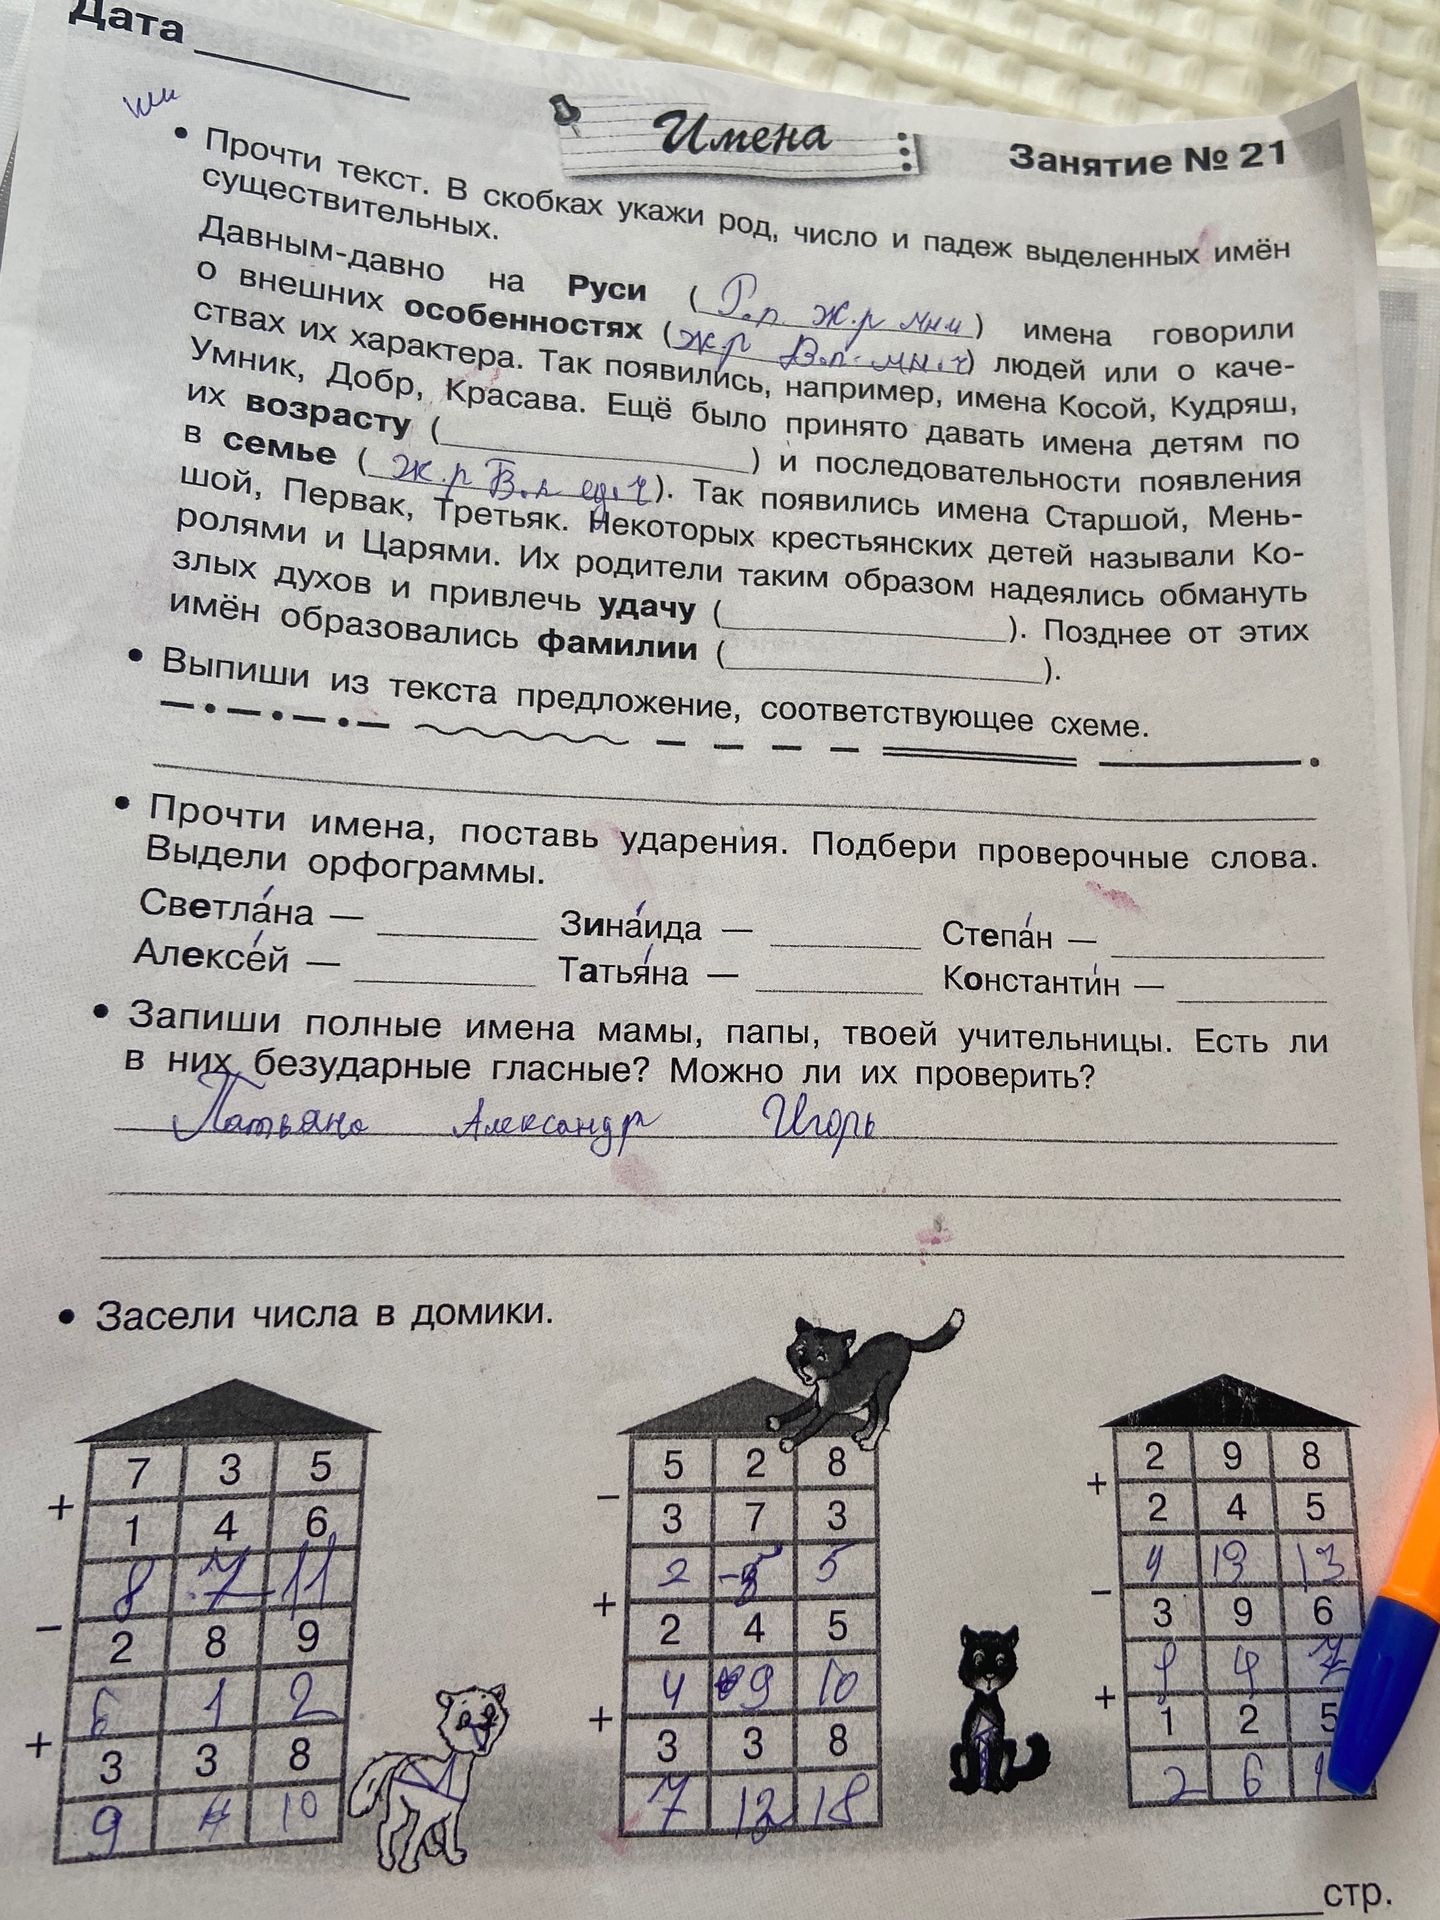 Дата
Имена
Занятие № 21
• Прочти текст. В скобках укажи род, число и падеж выделенных имён
существительных.
Давным-давно на Руси (Р.п ж.р мн ) имена говорили
о внешних особенностях (ж.р В.п. мн.ч) людей или о каче-
ствах их характера. Так появились, например, имена Косой, Кудряш,
Умник, Добр, Красава. Ещё было принято давать имена детям по
их возрасту ( ) и последовательности появления
в семье (ж.р В.п ед.ч). Так появились имена Старшой, Мень-
шой, Первак, Третьяк. Некоторых крестьянских детей называли Ко-
ролями и Царями. Их родители таким образом надеялись обмануть
злых духов и привлечь удачу ( ). Позднее от этих
имён образовались фамилии ( ).
• Выпиши из текста предложение, соответствующее схеме.
• Прочти имена, поставь ударения. Подбери проверочные слова.
Выдели орфограммы.
Светла́на — Зина́ида — Степа́н —
Алексе́й — Татья́на — Константи́н —
• Запиши полные имена мамы, папы, твоей учительницы. Есть ли
в них безударные гласные? Можно ли их проверить?
Татьяна Александр Игорь
• Засели числа в домики.
7 3 5
+
1 4 6
8 7 11
−
2 8 9
6 1 2
+
3 3 8
9 4 10
5 2 8
−
3 7 3
2 5
+
2 4 5
4 9 10
+
3 3 8
7 12 18
2 9 8
+
2 4 5
4 13 13
−
3 9 6
1 4 7
+
1 2 5
2 6 1
стр.